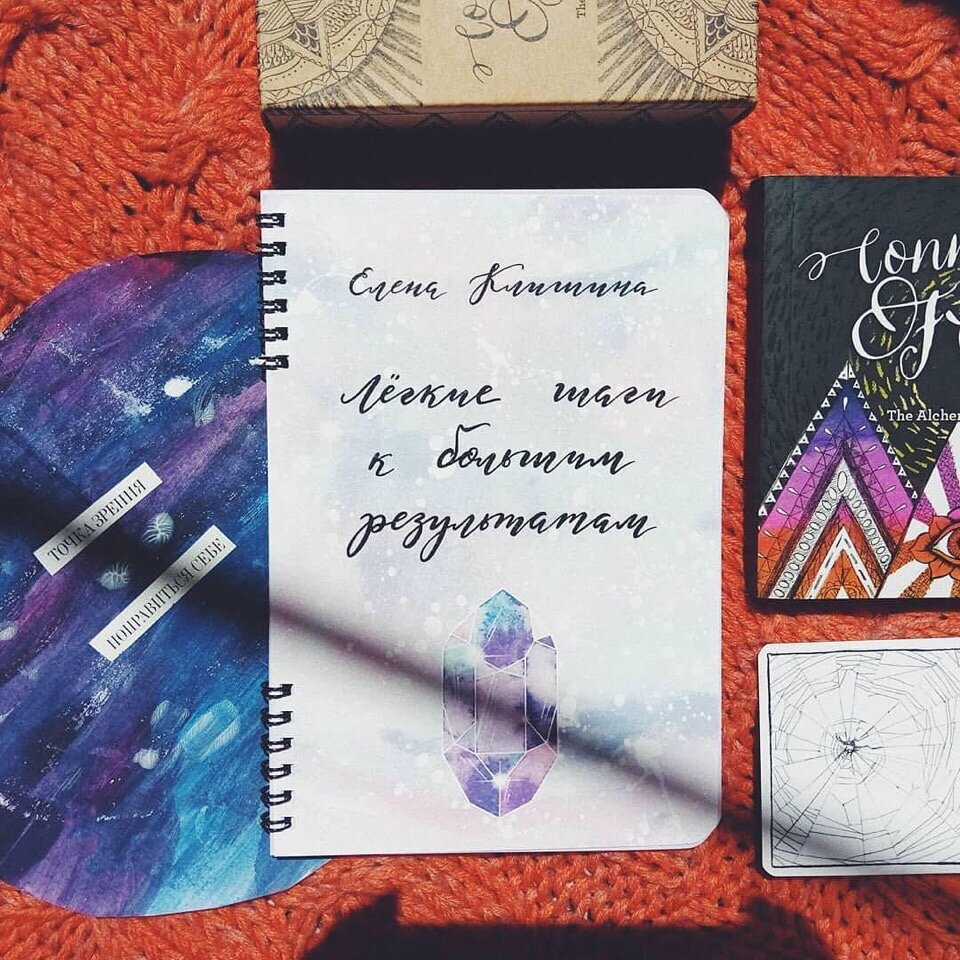 The
Елена Клишина
Лёгкие шаги
к большим
результатам
ТОЧКА ЗРЕНИЯ
ПОНРАВИТЬСЯ СЕБЕ
The Alchem